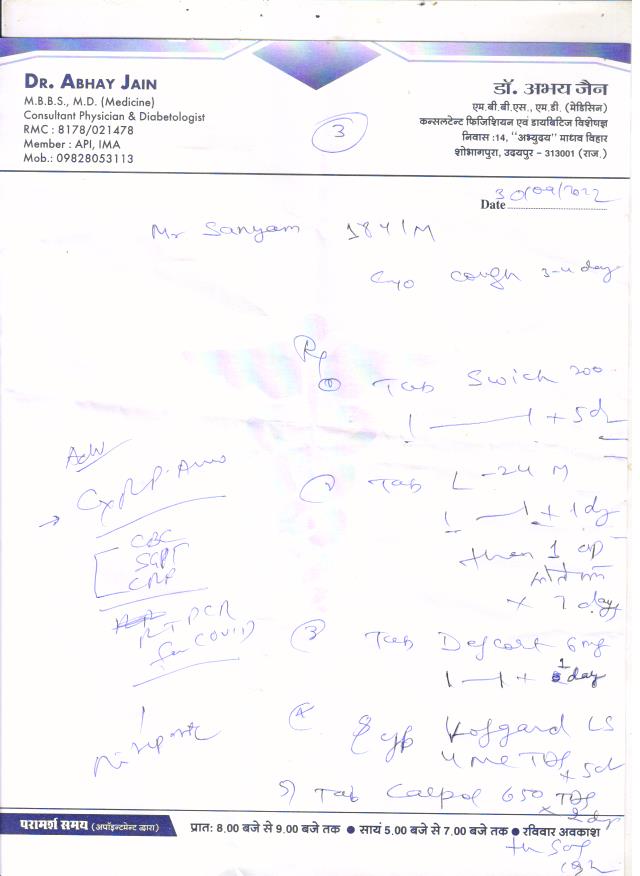 DR. ABHAY JAIN
M.B.B.S., M.D. (Medicine)
Consultant Physician & Diabetologist
RMC : 8178/021478
Member : API, IMA
Mob.: 09828053113
3
डॉ. अभय जैन
एम.बी.बी.एस., एम.डी. (मेडिसिन)
कन्सलटेन्ट फिजिशियन एवं डायबिटिज विशेषज्ञ
निवास :14, "अभ्युदय" माधव विहार
शोभागपुरा, उदयपुर - 313001 (राज.)
Date 30/09/2022
Mr Sanyam 18y/M
c/o cough 3-4 day
Rx
① Tab Swich 200
1 — 1 + 5d
② Tab L-24 M
1 — 1 + 1 day
then 1
x 7 days
③ Tab Defcort 6 mg
1 — 1 + 1 day
④ Syp Kofgard LS
TDS x 5d
5) Tab Calpol 650 TDS
x 2 day
then SOS
Adv
CxR P-A
CBC
SGPT
CRP
RTPCR
for COVID
परामर्श समय (अपॉइन्टमेन्ट द्वारा)
प्रात: 8.00 बजे से 9.00 बजे तक ● सायं 5.00 बजे से 7.00 बजे तक ● रविवार अवकाश